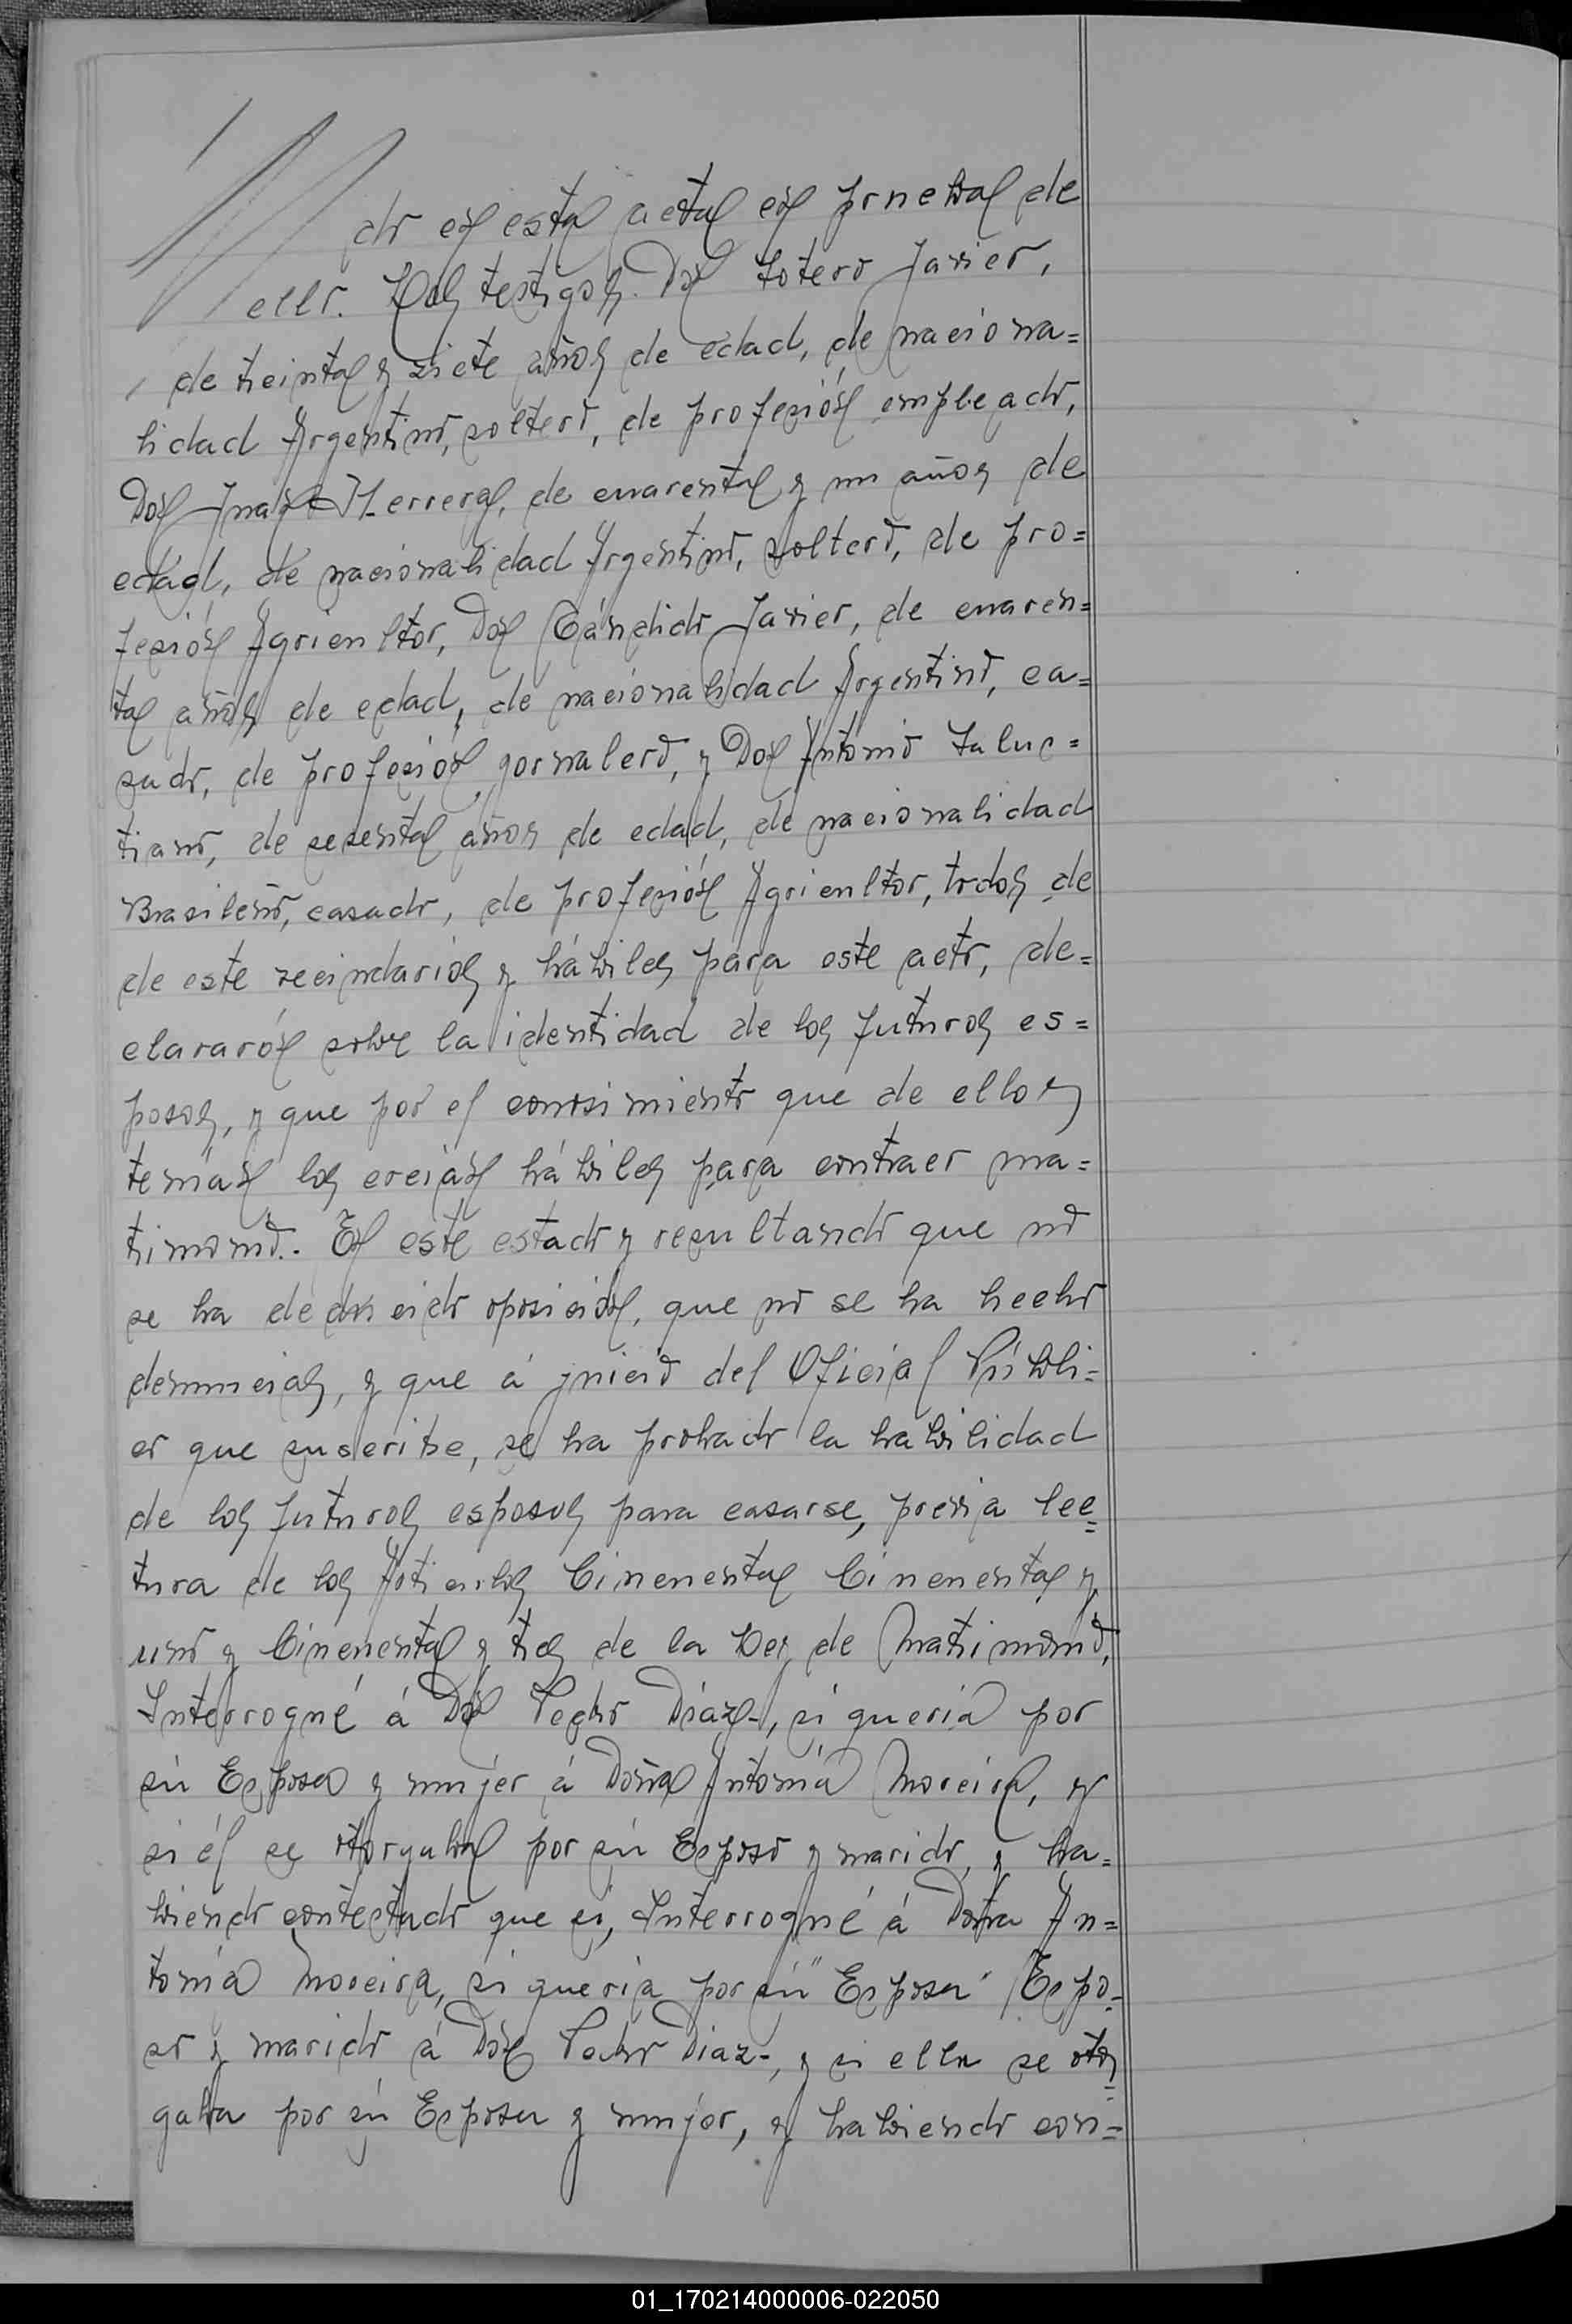 do en esta acta en prueba de
ello. Los testigos. Don Sotero Javier,
de treinta y siete años de edad, de naciona=
lidad Argentino, soltero, de profesión empleado,
Don Juan Herrera, de cuarenta y un años de
edad, de nacionalidad Argentino, soltero, de pro=
fesión Agricultor, Don Cándido Javier, de cuaren=
ta años de edad, de nacionalidad Argentino, ca=
sado, de profesión jornalero, y Don Antonio Salus=
tiano, de sesenta años de edad, de nacionalidad
Brasileño, casado, de profesión Agricultor, todos de
de este vecindarios y hábiles para este acto, de=
clararón sobre la identidad de los futuros es=
posos, y que por el conosimiento que de ellos
tenían los creían hábiles para contraer ma=
trimonio. En este estado y resultando que no
se ha deducido oposición, que no se ha hecho
denuncias, y que á juicio del Oficial Públi=
co que suscribe, se ha probado la habilidad
de los futuros esposos para casarse, previa lec=
tura de los Artículos Cincuenta Cincuenta y
uno y Cincuenta y tres de la Ley de Matrimonio,
Interrogué á Don Pedro Díaz-, si quería por
sú Esposa y mujer á Doña Antonia Moreira, y
si él se otorgaba por sú Esposo y marido, y ha=
biendo contestado que si, Interrogué á Doña An=
tonia Moreira, si quería por sú "Esposa" Espo=
so y marido á Don Pedro Diaz-, y si ella se otor=
gaba por sú Esposa y mujer, y habiendo con=
01_170214000006-022050